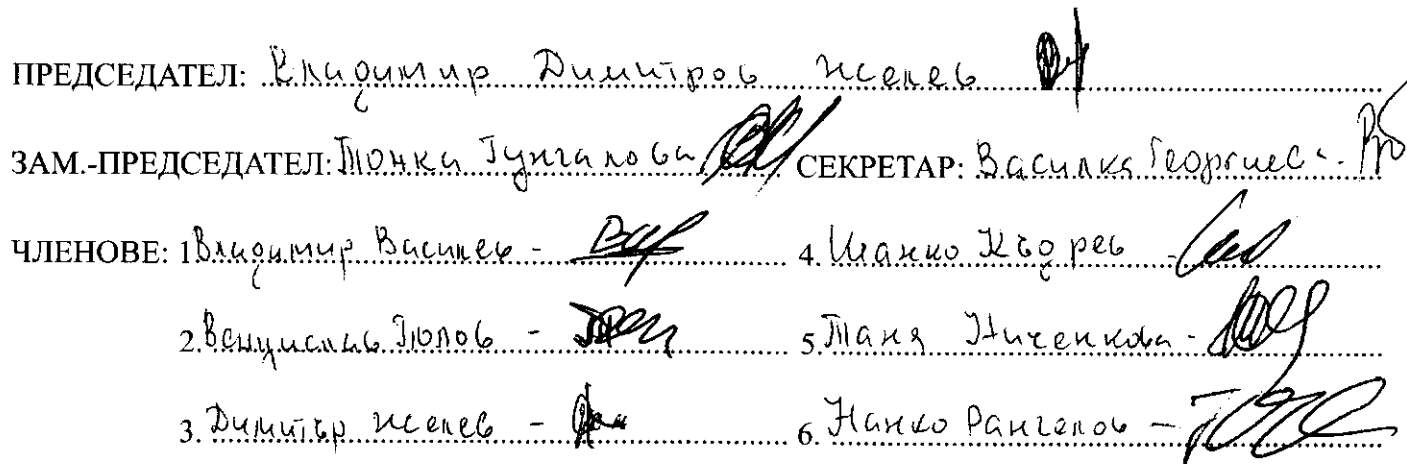 ПРЕДСЕДАТЕЛ: Владимир Димитров Желев
ЗАМ.-ПРЕДСЕДАТЕЛ: Тонка Гунгалова СЕКРЕТАР: Василка Георгиева
ЧЛЕНОВЕ: 1 Владимир Василев - 4. Иванко Къдрев -
2. Венцислав Гюлов - 5. Таня Ниченкова -
3. Димитър Желев - 6. Нанко Рангелов -